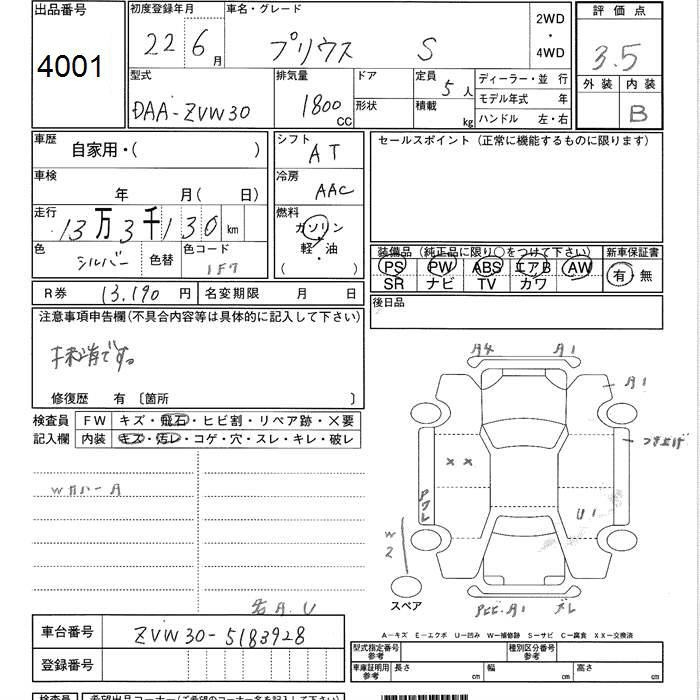 出品番号 初度登録年月 車名・グレード 2WD・4WD 評価点
4001 22 6月 プリウス S 3.5
型式 排気量 ドア 定員 ディーラー・並行 外装 内装
DAA-ZVW30 1800 CC 形状 5人 積載 kg モデル年式 年 B
ハンドル 左・右
車歴 自家用・( ) シフト AT セールスポイント (正常に機能するものに限ります)
車検 年 月( 日) 冷房 AAC
走行 13万3千130km 燃料 ガソリン・軽・油 ( )
装備品 (純正品に限り○をつけて下さい) 新車保証書
PS PW ABS エアB AW 有・無
SR ナビ TV カワ
色 シルバー 色替 色コード 1F7
R券 13,190円 名変期限 月 日 後日品
注意事項申告欄(不具合内容等は具体的に記入して下さい)
修復歴 有〔箇所 〕
検査員記入欄 FW キズ・飛石・ヒビ割・リペア跡・×要
内装 キズ・汚レ・コゲ・穴・スレ・キレ・破レ
A4 A1
A1
つき上げ
XX
U1
W2
スペア
A1
A―キズ E―エクボ U―凹み W―補修跡 S―サビ C―腐食 XX―交換済
車台番号 ZVW30-5183928
登録番号
型式指定番号参考 種別区分番号参考
車庫証明用参考 長さ cm 幅 cm 高さ cm
検査員 希望出品コーナー(ご希望のコーナー名を記入して下さい)